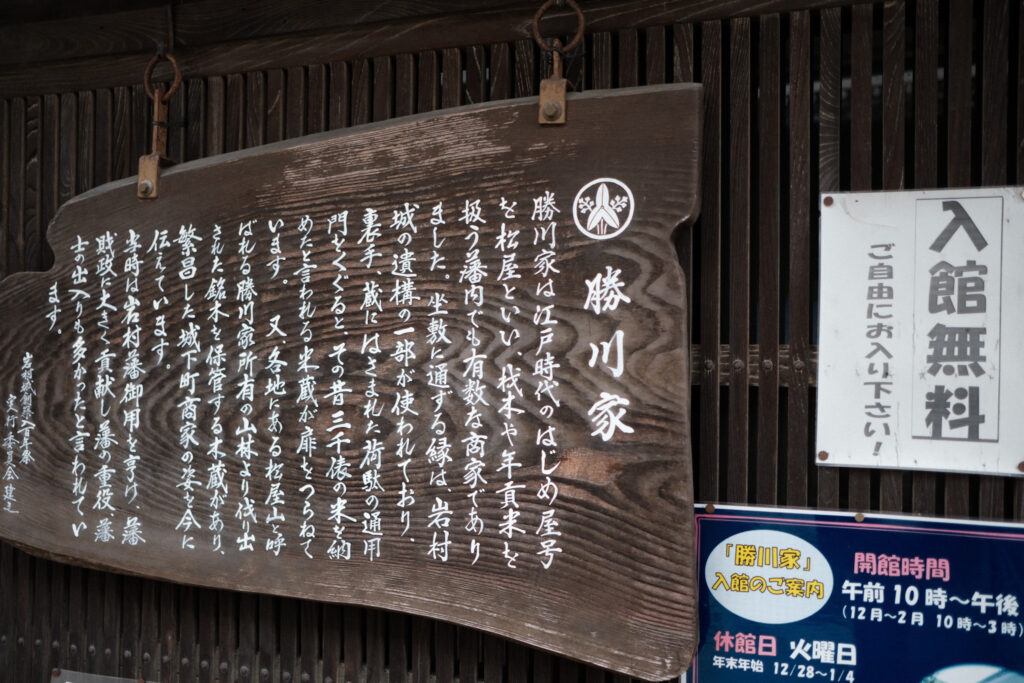 勝川家
勝川家は江戸時代のはじめ屋号
を松屋といい、材木や年貢米を
扱う藩内でも有数な商家であり
ました。坐敷に通ずる縁は、岩村
城の遺構の一部が使われており、
裏手、蔵にはさまれた荷駄の通用
門をくぐると その昔 三千俵の米を納
めたと言われる米蔵が扉をつらねて
います。又、各地にある松屋山と呼
ばれる勝川家所有の山林より伐り出
された銘木を保管する木蔵があり、
繁昌した城下町商家の姿を今に
伝えています。
当時は岩村藩御用を享け、藩
財政に大きく貢献し藩の重役、藩
士の出入りも多かったと言われてい
ます。
実行委員会 建之
入館無料
ご自由にお入り下さい!
「勝川家」
入館のご案内
開館時間
午前10時〜午後
(12月〜2月 10時〜3時)
休館日 火曜日
年末年始 12/28〜1/4